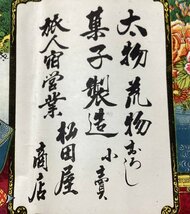 太物荒物おろし
菓子製造小賣
旅人宿営業松田屋
商店